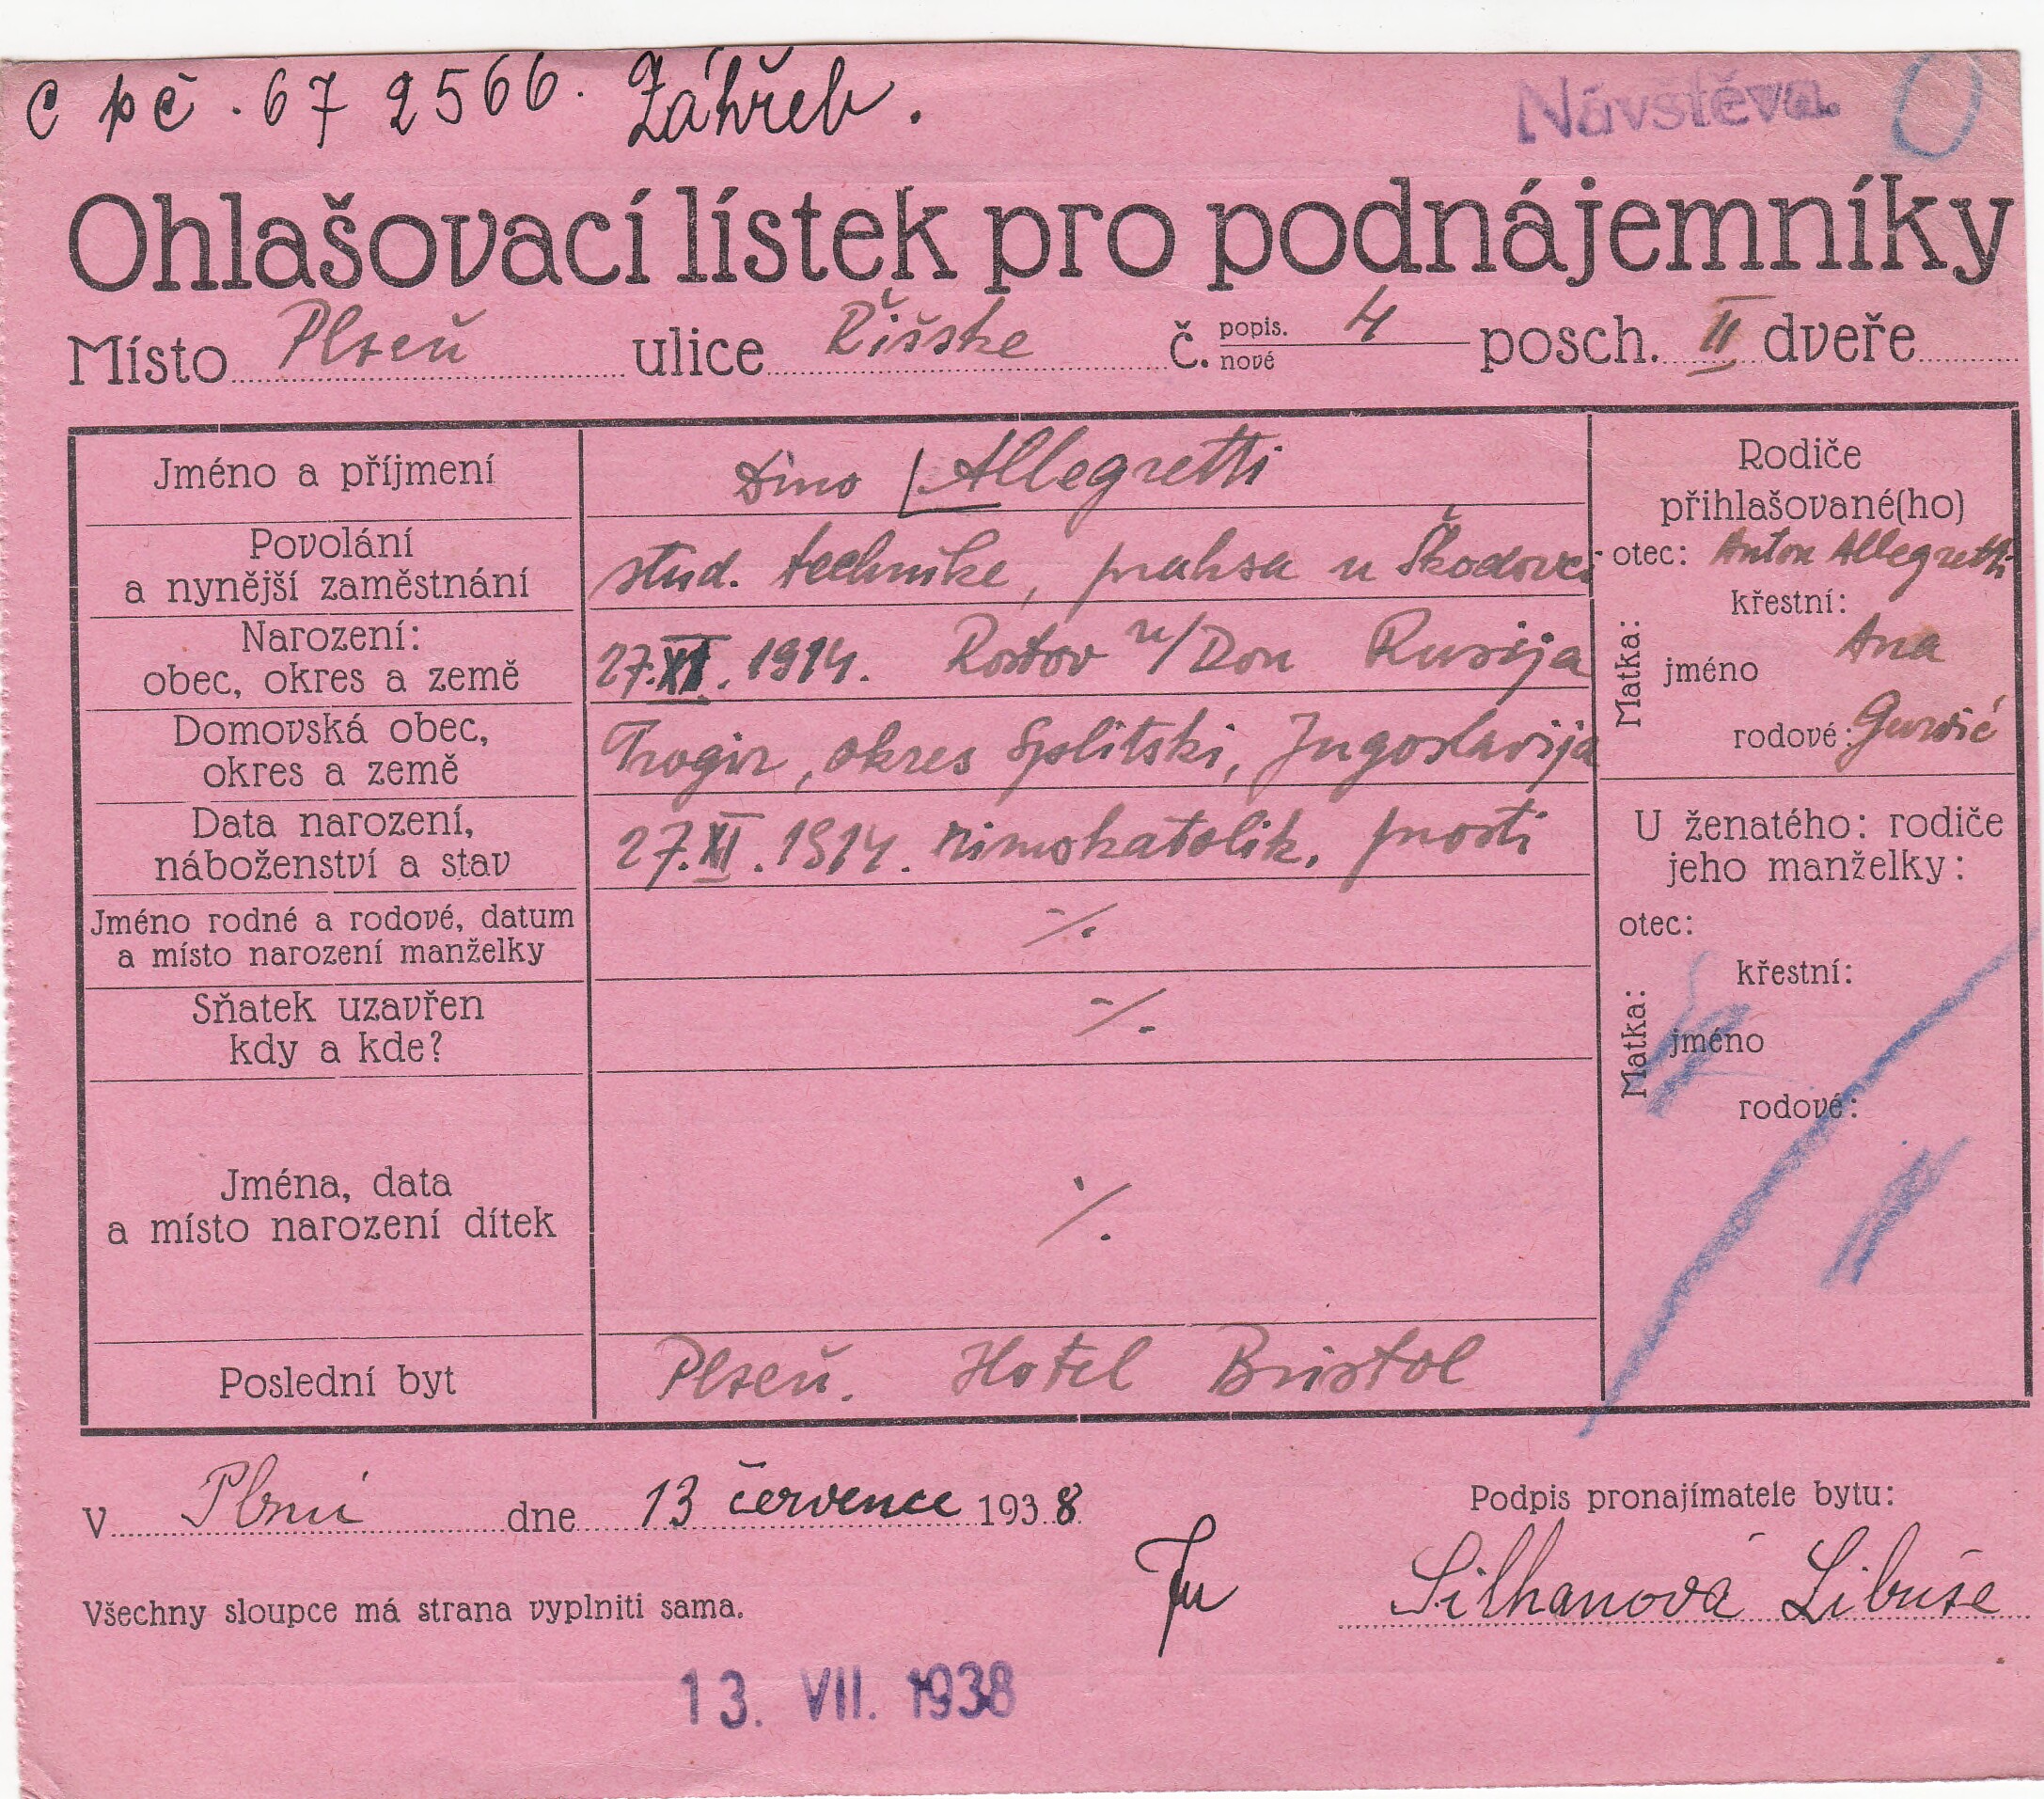 C pč. 67 2566. Záhřeb.
Návštěva.
Ohlašovací lístek pro podnájemníky
Místo Plzeň ulice Říšske č. popis. nové 4 posch. II dveře
Jméno a příjmení Dino Allegretti
Povolání
a nynější zaměstnání stud. technike, praksa u Škodovci
Narození:
obec, okres a země 27.XI. 1914. Rostov n/Don Rusija
Domovská obec,
okres a země Trogir, okres Splitski, Jugoslavija
Data narození,
náboženství a stav 27.XI.1914. rimokatolik. prosti
Jméno rodné a rodové, datum
a místo narození manželky ⁒
Sňatek uzavřen
kdy a kde? ⁒
Jména, data
a místo narození dítek ⁒
Poslední byt Plzeň. Hotel Bristol
Rodiče
přihlašované(ho)
otec: Anton Allegretti
Matka:
křestní:
jméno Ana
rodové:
U ženatého: rodiče
jeho manželky:
otec:
Matka:
křestní:
jméno
rodové:
V Plzni dne 13 července 1938
Podpis pronajímatele bytu:
Silhanová Libuše
Všechny sloupce má strana vyplniti sama.
13. VII. 1938